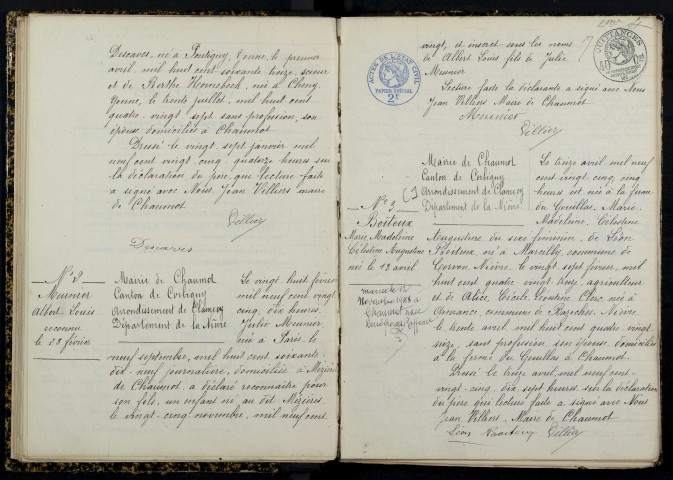 Descaves, né à Pontigny, Yonne, le premier
avril mil huit cent soixante treize,
et de Berthe née à Cheny,
Yonne, le trente juillet, mil huit cent
quatre-vingt sept sans profession, son
épouse domiciliés à Chaumot
Dressé le vingt sept janvier mil
neuf cent vingt cinq, quatorze heures sur
la déclaration du père, que lecture faite
a signé avec Nous Jean Villiers maire
de Chaumot
Descaves
N° 2
Meunier
Albert Louis
reconnu
le 28 février
Mairie de Chaumot
Canton de Corbigny
Arrondissement de Clamecy
Département de la Nièvre
Le vingt huit février
mil neuf cent vingt
cinq, dix heures,
Julie Meunier,
née à Paris, le
neuf septembre, mil huit cent soixante
dix-neuf journalière, domiciliée à Mézières
de Chaumot, a déclaré reconnaître pour
son fils, un enfant né au dit Mézières
le vingt-cinq novembre, mil neuf cent
vingt, et inscrit sous les noms
de Albert Louis fils de Julie
Meunier
Lecture faite la déclarante a signé avec Nous
Jean Villiers Maire de Chaumot
Meunier
ACTES DE L'ÉTAT CIVIL
PAPIER SPÉCIAL
2F
QUITTANCES
N° 3
Boiteux
Marie Madeleine
Célestine Augustine
née le 13 avril
Mairie de Chaumot
Canton de Corbigny
Arrondissement de Clamecy
Département de la Nièvre
Le treize avril mil neuf
cent vingt-cinq, cinq
heures est née à la ferme
du Gouillas, Marie
Madeleine, Célestine
Augustine du sexe féminin, de Léon
Boiteux, né à Marcilly, commune de
Cervon, Nièvre, le vingt sept février, mil
huit cent quatre vingt treize, agriculteur
et de Alice, Cécile, Léontine Clerc, née à
commune de Bazoches, Nièvre,
le trente avril, mil huit cent quatre vingt
seize, sans profession, son épouse, domiciliés
à la ferme du Gouillas à Chaumot.
Dressé le treize avril, mil neuf cent-
vingt-cinq, dix sept heures, sur la déclaration
du père, qui lecture faite a signé avec Nous
Jean Villiers, Maire de Chaumot
Léon Boiteux
mariée le 12
Novembre
à Chaumot avec